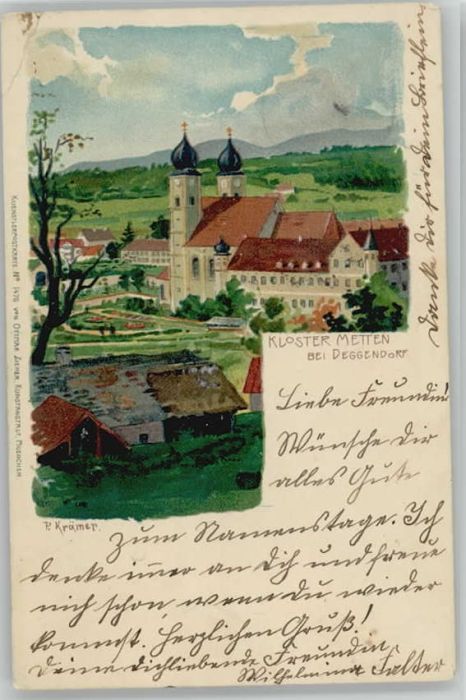 KLOSTER METTEN
BEI DEGGENDORF
Liebe Freundin!
Wünsche Dir
alles Gute
zum Namenstage. Ich
denke imer an Dich und freue
mich schon, wenn Du wieder
kommst. Herzlichen Gruß!
Deine Dichliebende Freundin
Wilhelmina Falter
Danke Dir für Dein Brieflein
P. Krämer.
KUENSTLERPOSTKARTE No 1476 VON OTTMAR ZIEHER, KUNSTANSTALT, MUENCHEN